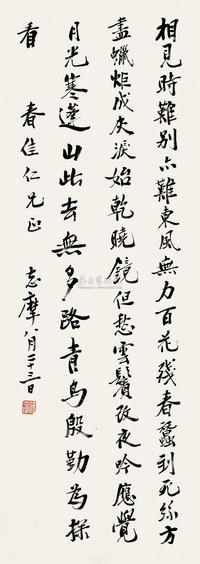 相見時難別亦難東風無力百花殘春蠶到死絲方
盡蠟炬成灰淚始乾曉鏡但愁雲鬢改夜吟應覺
月光寒蓬山此去無多路青鳥殷勤為探
看
春佳仁兄正
志摩八月二十三日